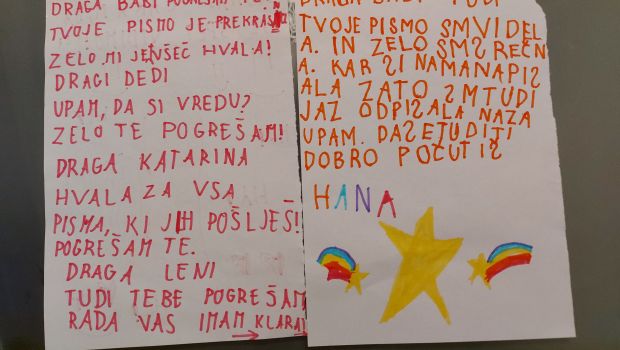 DRAGA BABI POGREŠAM TE.
TVOJE PISMO JE PREKRASN
ZELO MI JE VŠEČ HVALA!
DRAGI DEDI
UPAM, DA SI VREDU?
ZELO TE POGREŠAM!
DRAGA KATARINA
HVALA ZA VSA
PISMA, KI JIH POŠLJEŠ!
POGREŠAM TE.
DRAGA LENI
TUDI TEBE POGREŠAM
RADA VAS IMAM KLARA
DRAGA BABI
TVOJE PISMO SM VIDEL
A. IN ZELO SMSREČN
A. KAR SI NAMANAPIS
ALA ZATO SMTUDI
JAZ ODPISALA NAZA
UPAM. DASETUDITI
DOBRO POČUTIS
HANA